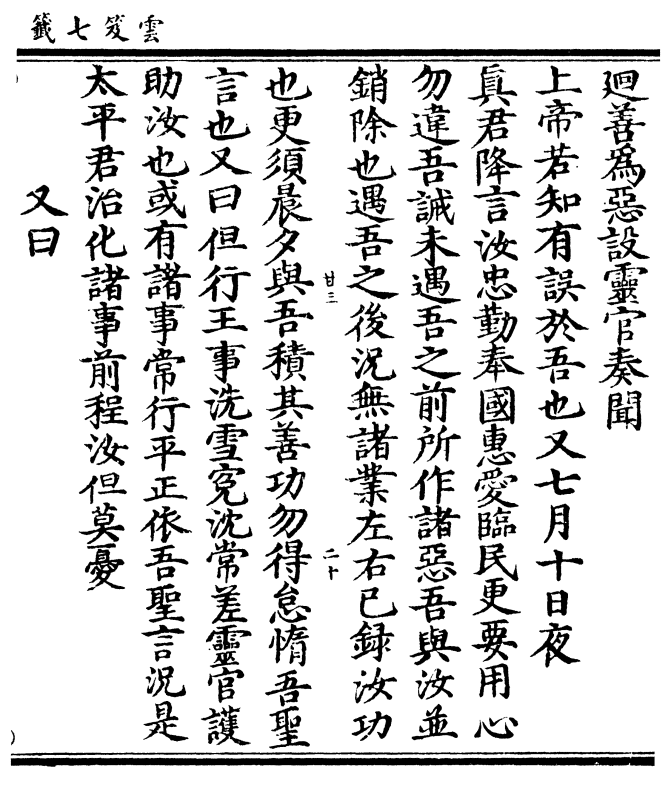 雲笈七籤
迴善為惡設靈官奏聞
上帝若知有誤於吾也又七月十日夜
真君降言汝忠勤奉國惠愛臨民更要用心
勿違吾誠未遇吾之前所作諸惡吾與汝並
銷除也遇吾之後況無諸業左右已録汝功
甘三
二十
也更須晨夕與吾積其善功勿得怠惰吾聖
言也又曰但行王事洗雪寃沈常差靈官護
助汝也或有諸事常行平正依吾聖言況是
太平君治化諸事前程汝但莫憂
又曰